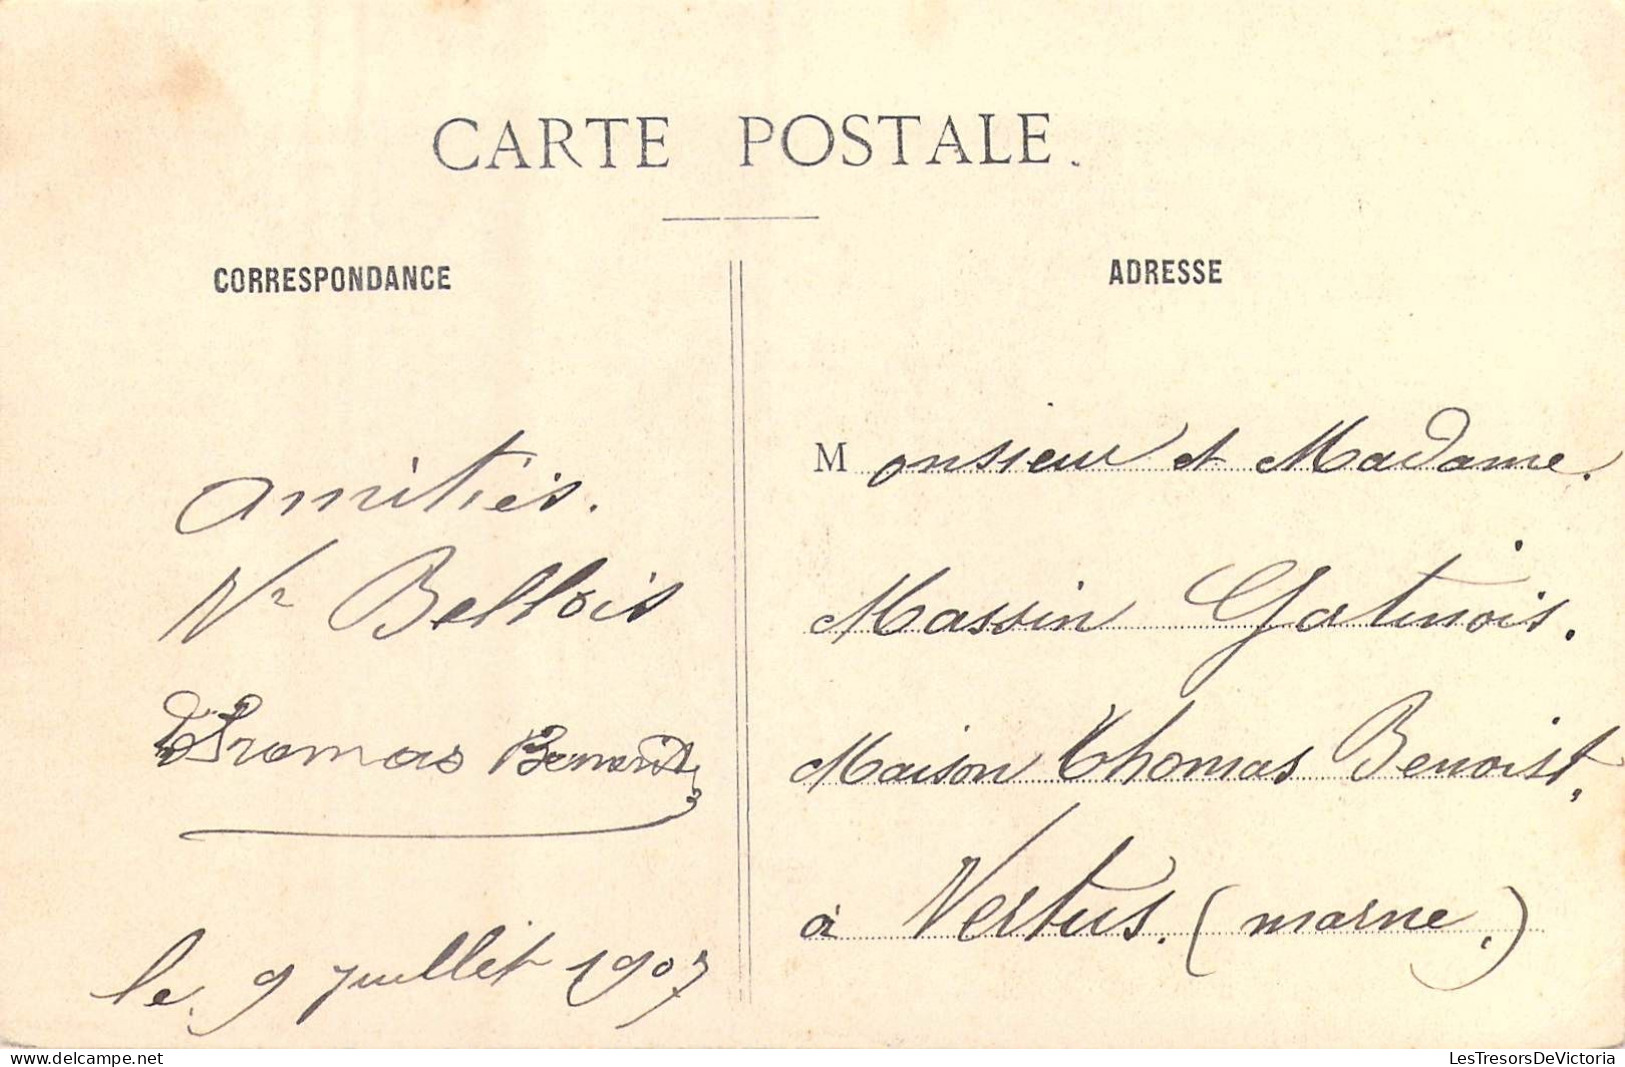 CARTE POSTALE.
CORRESPONDANCE
amitiés.
Ve Bellois
Thomas Benoist
le 9 juillet 1907
ADRESSE
Monsieur et Madame.
Massin Gatinois.
Maison Thomas Benoist,
à Vertus. (marne.)
LesTresorsDeVictoria